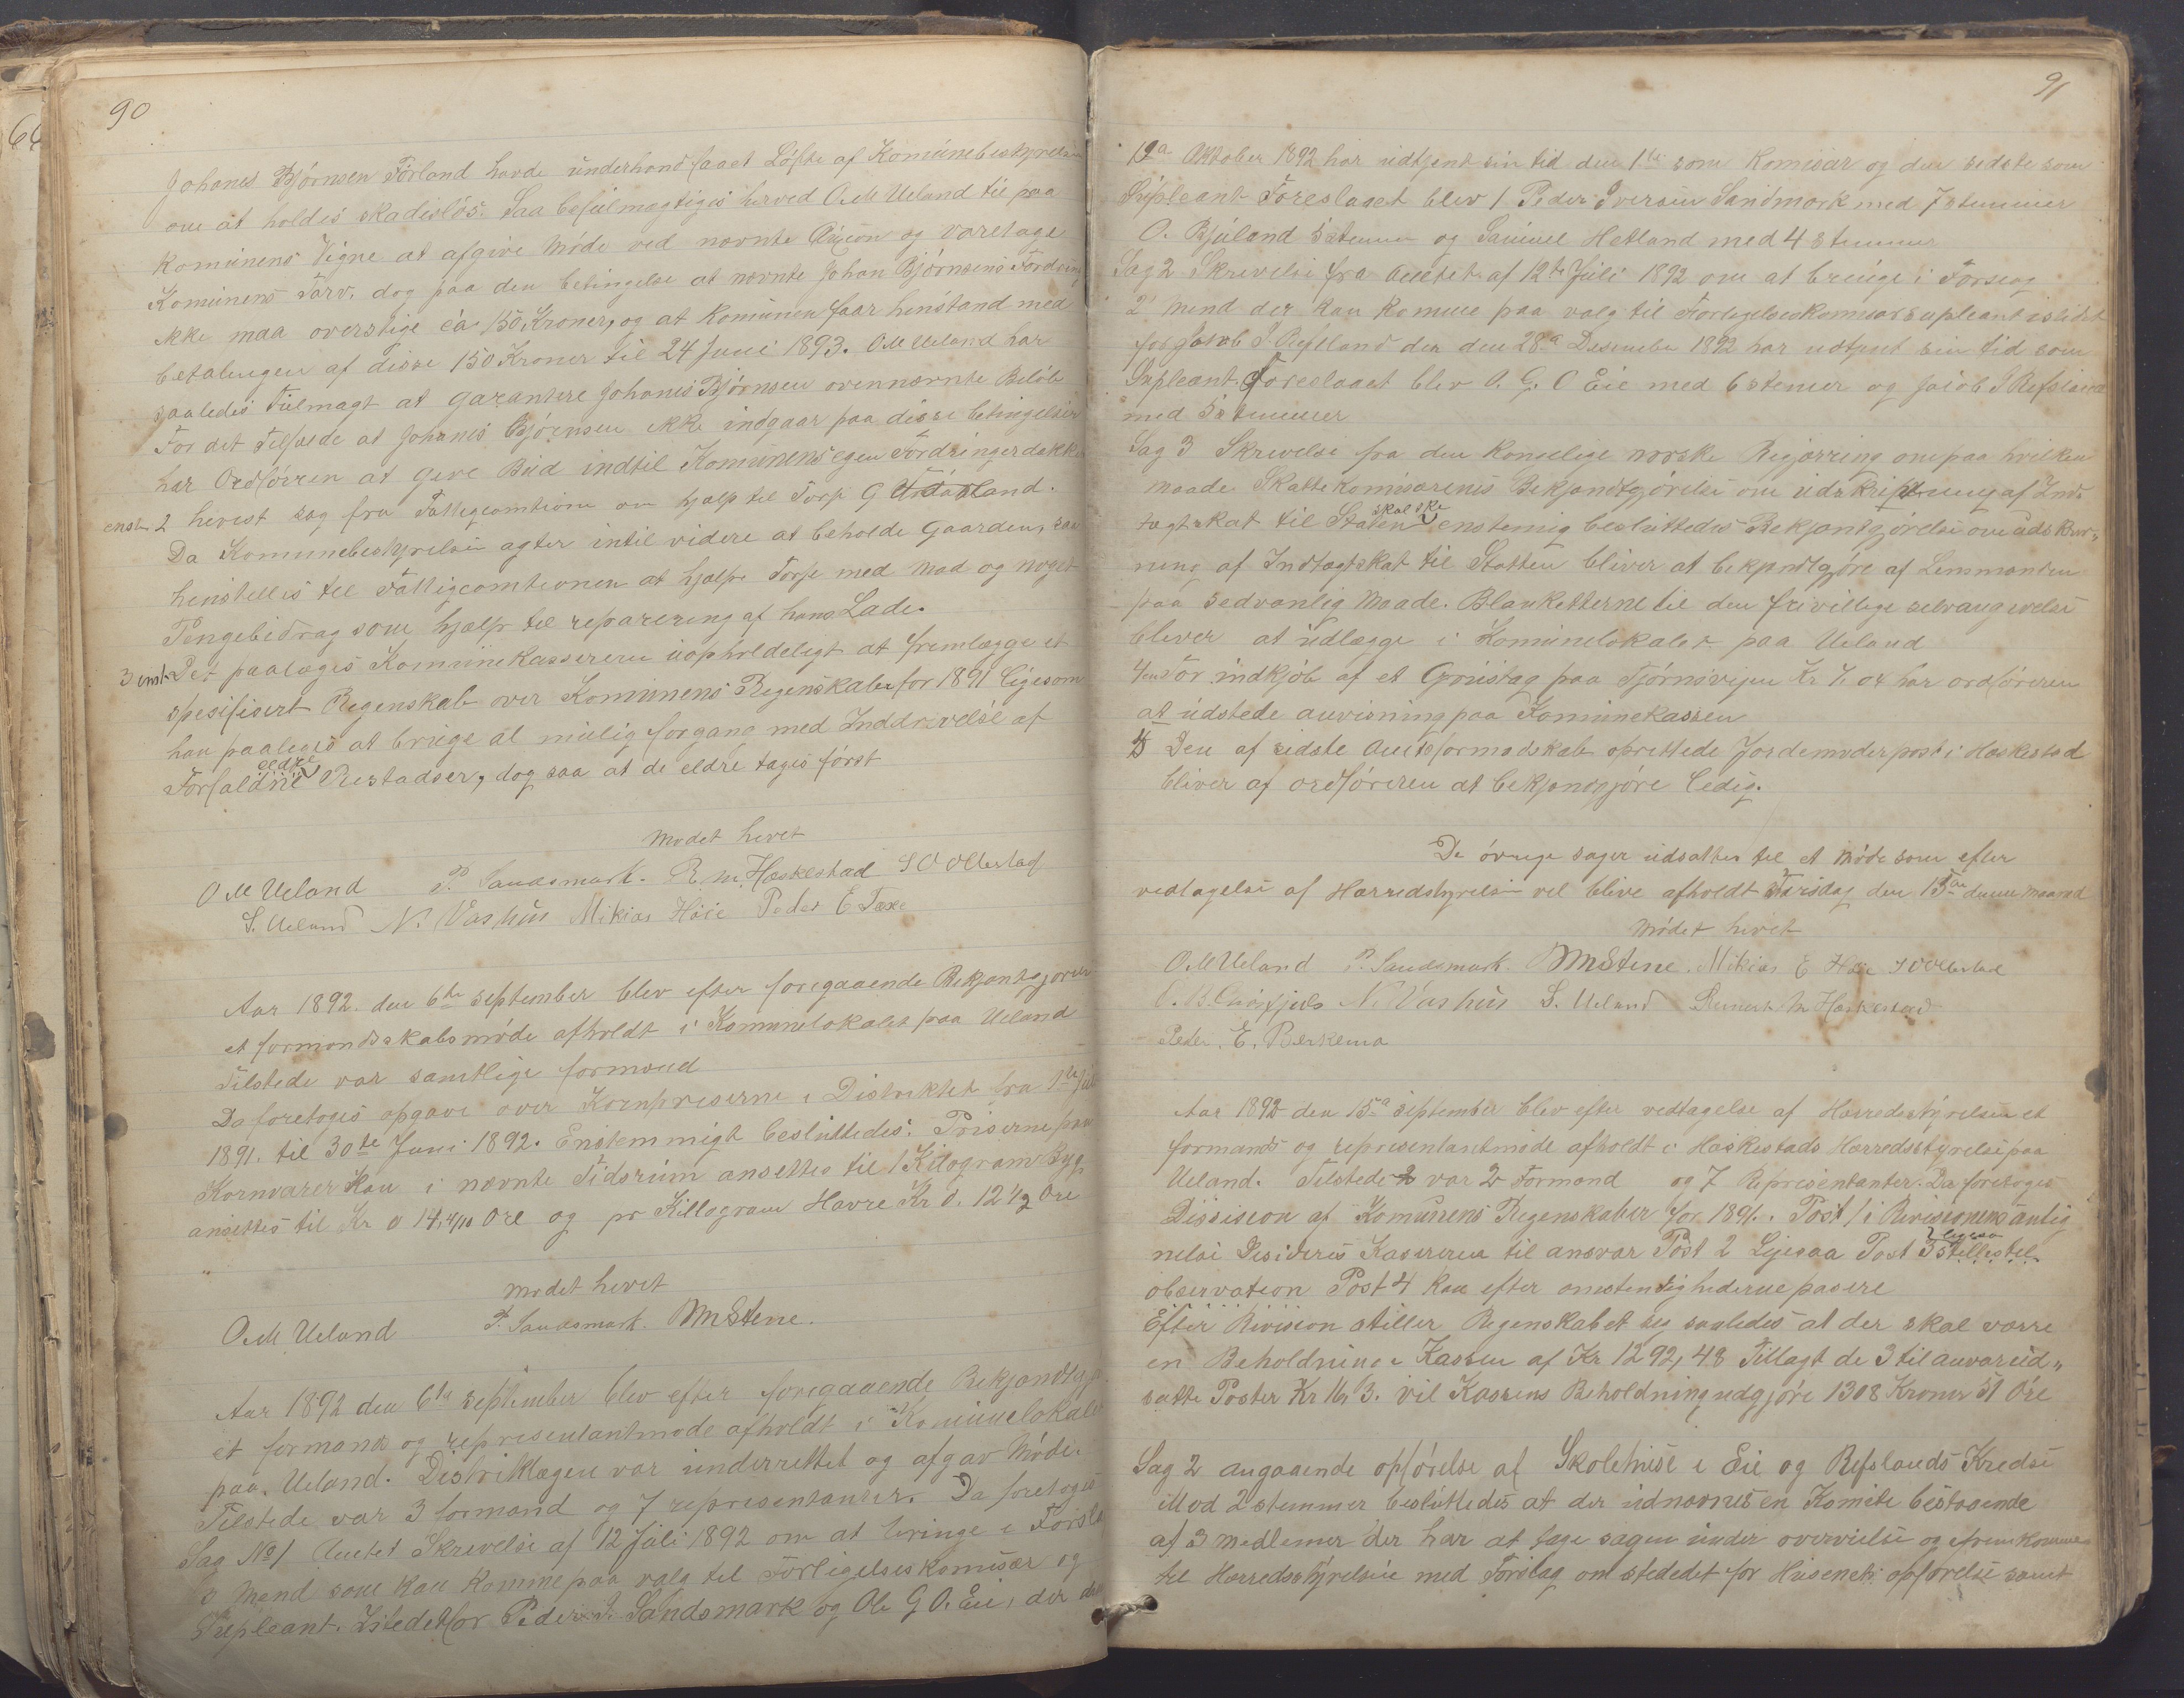 90
Johanes Bjórnsen Förland havde underhand faaet Löfte af Komünebestyrelsen
om at holdes skadeslós. Saa befulmægtiges herved O. M. Ueland til paa
Komünens Vegne at afgive Móde ved nævnte Auction og varetage
Komünens Tarv. dog paa den betingelse at nævnte Johan Bjórnsens Fordring
ikke maa overstige ca 150 Kroner, og at Komünen faar henstand med
betalingen af disse 150 Kroner til 24 Juni 1893. O M Ueland har
saaledes Fulmagt at garantere Johanes Bjórnsen ovennævnte Belób
For det Tilfælde at Johanes Bjórnsen ikke indgaar paa disse betingelser
har Ordfórren at give Bud indtil Komünens egen Fordringer dække
enst. 2 hevist sag fra Fattigcomtionen om hjelp til Torje G
Da Komunebestyrelsen agter intil videre at beholde Gaarden, saa
henstilles til Fattigcomtionen at hjælpe Torje med Mad og noget
Pengebidrag som hjælp til reparering af hans Lade.
3 enst. Det paalæges Komünekassereren uopholdeligt at fremlægge et
spesifisert Regenskab over Komünens Regenskaber for 1891 ligesom
han paaleges at bruge al mulig forgang med Inddrivelse af
eldre
Forfaldne Restadser, dog saa at de eldre tages fórst
Modet hevet
O M Ueland P. Sandsmark. R. M. Haskestad S O Ollestad
S. Ueland N. Vashüs Mikias Hóie Peder E Taxe
Aar 1892. den 6te September blev efter foregaaende Bekjantgjórelse
et formondskabsmóde afholdt i Komunelokalet paa Ueland
Tilstede var samtlige formænd
Da foretoges opgave over Kornpriserne i Distriktet fra 1te Juli
1891. til 30te Juni 1892. Enstemmigt beslüttedes: Priserne paa
Kornvarer Kan i nævnte Tidsrüm ansettes til 1 Kilogram Byg
ansettes til Kr 0 14,4/10 Ore og pr Killogram Havre Kr 0. 12 1/2 Ore
Modet hevet
O. M. Ueland P. Sandsmark. M Stene.
Aar 1892 den 6te September blev efter foregaaende Bekjandtgj
et formands og representantmode afholdt i Komünelokalet
paa Ueland. Distriktlægen var underrettet og afgav Móde.
Tilstede var 3 formænd og 7 representanter. Da foretoges
Sag No 1 Amtets Skrivelse af 12 Juli 1892 om at bringe i Forslag
3 Mænd som kan komme paa valg til Forligelseskomisær og
Supleant. Istedetfor Peder I. Sandsmark og Ole G. O. Eie, der den
91
19a Oktober 1892 har udtjent sin tid den 1te som Komisær og den sidste som
Supleant Foreslaaet blev 1 Peder Iversen Sandsmark med 7 stemmer
O. Bjüland 5 stemmer og Samuel Hetland med 4 stemmer
Sag 2 Skrivelse fra Amtet af 12te Juli 1892 om at bringe i Forslag
2 mend der kan komme paa valg til Forligelseskomisærsupleant istedet
for Jakob J. Refsland der den 28a Desember 1892 har udtjent sin tid som
Supleant. Foreslaaet blev O. G. O Eie med 6 stemmer og Jacob J Refsland
med 5 stemmer
Sag 3 Skrivelse fra den kongelige norske Regjærring om paa hvilken
maade Skattekomisærens Bekjandtgjórelse om udskrivning af Ind„
skal ske
tægtskat til Staten enstemig beslüttedes Bekjantgjórelse om udskriv„
ning af Indtægtskat til Statten bliver at bekjendtgjöre af Lensmanden
paa sedvanlig Maade. Blanketterne til den frivillige selvangivelse
bliver at udlægge i Komünelokalet paa Ueland
4 enst For indkjób af et Grüstag paa Tjórnsvejen Kr 7,04 har ordfóreren
at udstede anvisning paa Komünekassen
5 Den af sidste Amtsformadskab oprettede Jordemoderpost i Haskestad
bliver af ordfóreren at bekjendgjóre ledig.
De óvrige sager udsattes til et Móde som efter
vedtagelse af Herredstyrelsen vil blive afholdt Torsdag den 15de denne Maaned
Módet hevet
O. M Ueland P. Sandsmark. M Stene. Mikias E Hóie S O Ollestad
N. Vashüs S. Ueland Reinert M Haskestad
Peder. E. Berkemo
Aar 1892 den 15a September blev efter vedtagelse af Herredsstyrelsen et
formands og representantmóde afholdt i Haskestads Herredsstyrelse paa
Ueland. Tilstede var 2 Formænd og 7 Representanter. Da foretoges
Dissision af Komünens Regenskaber for 1891. Post 1 i Revisionens antig
nelse Desideres Kassereren til ansvar Post 2 Ligesaa Post 3 ligesaa stilles til
observation Post 4 kan efter omstendighederne passere
Efter Revision stiller Regenskabet sig saaledes at der skal være
en Beholdning i Kassen af Kr 1292,48 Tillagt de 3 til ansvar ud„
satte Poster Kr 16,3. vil Kassens Beholdning udgjóre 1308 Kroner 51 Óre
Sag 2 angaaende opfórelse af Skolehüse i Eie og Refslands Kredse
Mod 2 stemmer beslüttedes at der udnævnes en Komite bestaaende
af 3 Medlemer der har at tage sagen ünder overveielse og fremkomme
til Herredsstyrelsen med Forslag om stedet for Hüsenes opfórelse samt